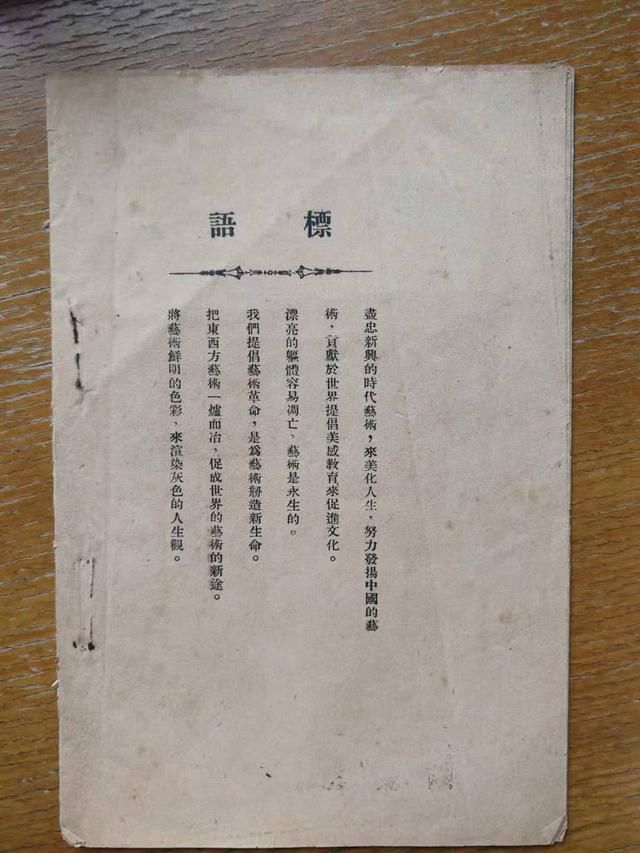 標語
盡忠新興的時代藝術，來美化人生，努力發揚中國的藝
術，貢獻於世界提倡美感教育來促進文化。
漂亮的軀體容易凋亡，藝術是永生的。
我們提倡藝術革命，是爲藝術剙造新生命。
把東西方藝術一爐而冶，促成世界的藝術的新途。
將藝術鮮明的色彩，來渲染灰色的人生觀。